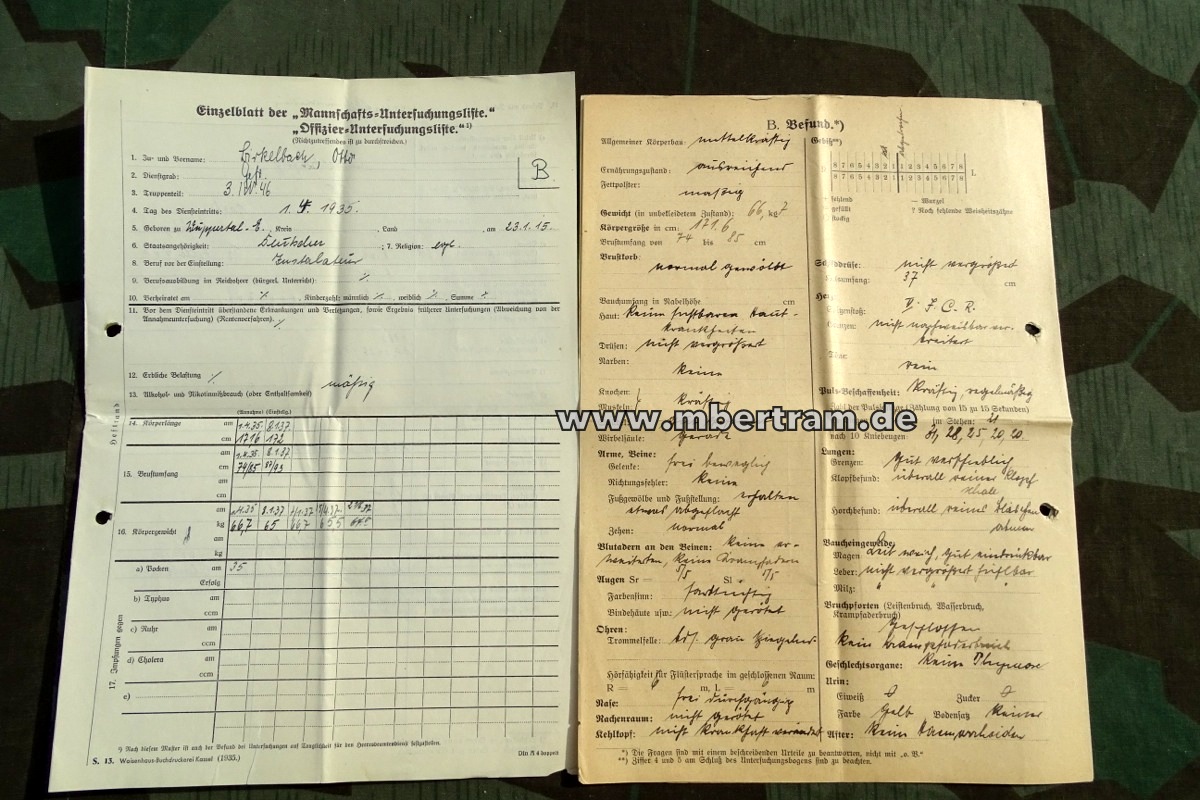 Einzelblatt der „Mannschafts-Untersuchungsliste.“
„Offizier-Untersuchungsliste.“ ¹)
(Nichtzutreffendes ist zu durchstreichen.)
1. Zu- und Vorname: Birkelbach, Otto
B
2. Dienstgrad:
3. Truppenteil: 3.
4. Tag des Diensteintritts: 1. 4. 1935.
5. Geboren zu Wuppertal-E., Kreis , Land , am 23.1.15.
6. Staatsangehörigkeit: Deutscher ; 7. Religion: evgl.
8. Beruf vor der Einstellung: Installateur
9. Berufsausbildung im Reichsheer (bürgerl. Unterricht): %
10. Verheiratet am % , Kinderzahl: männlich % , weiblich % , Summe %
11. Vor dem Diensteintritt überstandene Erkrankungen und Verletzungen, sowie Ergebnis früherer Untersuchungen (Abweichung von der
Annahmeuntersuchung) (Rentenverfahren). %
12. Erbliche Belastung %
13. Alkohol- und Nikotinmißbrauch (oder Enthaltsamkeit) mäßig
Heftrand
14. Körperlänge am 1.4.35 8.1.37
cm 171,6 172
am 1.4.35 8.1.37
15. Brustumfang cm 74/85 87/93
am
cm
16. Körpergewicht am 1.4.35 8.1.37
kg 66,7 65 66,7 65,5
am
kg
17. Impfungen gegen
a) Pocken am 35
Erfolg
b) Typhus am
ccm
c) Ruhr am
ccm
d) Cholera am
ccm
e)
¹) Nach diesem Muster ist auch der Befund bei Untersuchungen auf Tauglichkeit für den
S. 13. Waisenhaus-Buchdruckerei Kassel (1935.)
Din A 4 doppelt
B. Befund.*)
Allgemeiner Körperbau: mittelkräftig
Ernährungszustand: ausreichend
Fettpolster: mäßig
Gewicht (in unbekleidetem Zustand): 66, kg 7
Körpergröße in cm: 171,6
Brustumfang von 74 bis 85 cm
Brustkorb: normal gewölbt
Bauchumfang in Nabelhöhe cm
Haut: keine sichtbaren Haut-
krankheiten
Drüsen: nicht vergrößert
Narben: keine
Knochen:
Muskeln: kräftig
Wirbelsäule: gerade
Arme, Beine:
Gelenke: frei beweglich
Richtungsfehler: keine
Fußgewölbe und Fußstellung: erhalten
etwas abgeflacht
Zehen: normal
Blutadern an den Beinen: keine er-
weiterten, keine Krampfadern
Augen Sr = 5/5 Sl = 5/5
Farbensinn: farbtüchtig
Bindehäute usw.: nicht gerötet
Ohren:
Trommelfelle: bds. grau spiegelnd
Hörfähigkeit für Flüstersprache im geschlossenen Raum:
R = 6 m, L = 6 m
Nase: frei durchgängig
Rachenraum: nicht gerötet
Kehlkopf: nicht krankhaft verändert
Gebiß**)
8 7 6 5 4 3 2 1 1 2 3 4 5 6 7 8
8 7 6 5 4 3 2 1 1 2 3 4 5 6 7 8
L
fehlend
gefüllt
Wurzel
? Noch fehlende Weisheitszähne
nicht vergrößert
37 cm
V. I. C. R.
nicht nachweisbar ver-
breitert
rein
Puls-Beschaffenheit: kräftig, regelmäßig
(Zählung von 15 zu 15 Sekunden)
im Stehen: 21
nach 10 Kniebeugen: 31, 28, 25, 20, 20.
Lungen:
Grenzen: gut verschieblich
Klopfbefund: überall reiner Klopf-
schall
Horchbefund: überall reines Bläschen-
atmen
Baucheingeweide
Magen: Leib weich, gut eindrückbar
Leber: nicht vergrößert fühlbar
Milz: " "
Bruchpforten (Leistenbruch, Wasserbruch,
Krampfaderbruch) geschlossen
kein Krampfaderbruch
Geschlechtsorgane: keine Phymose
Urin:
Eiweiß Zucker
Farbe gelb Bodensatz keiner
After: kein Hämorrhoiden
*) Die Fragen sind mit einem beschreibenden Urteile zu beantworten, nicht mit „o. B.“
**) Ziffer 4 und 5 am Schluß des Untersuchungsbogens sind zu beachten.
www.mbertram.de